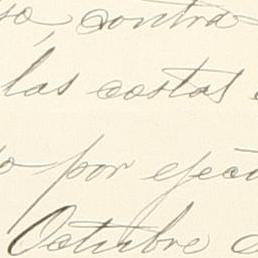 so, contra
las costas
o por ejecu
Octubre